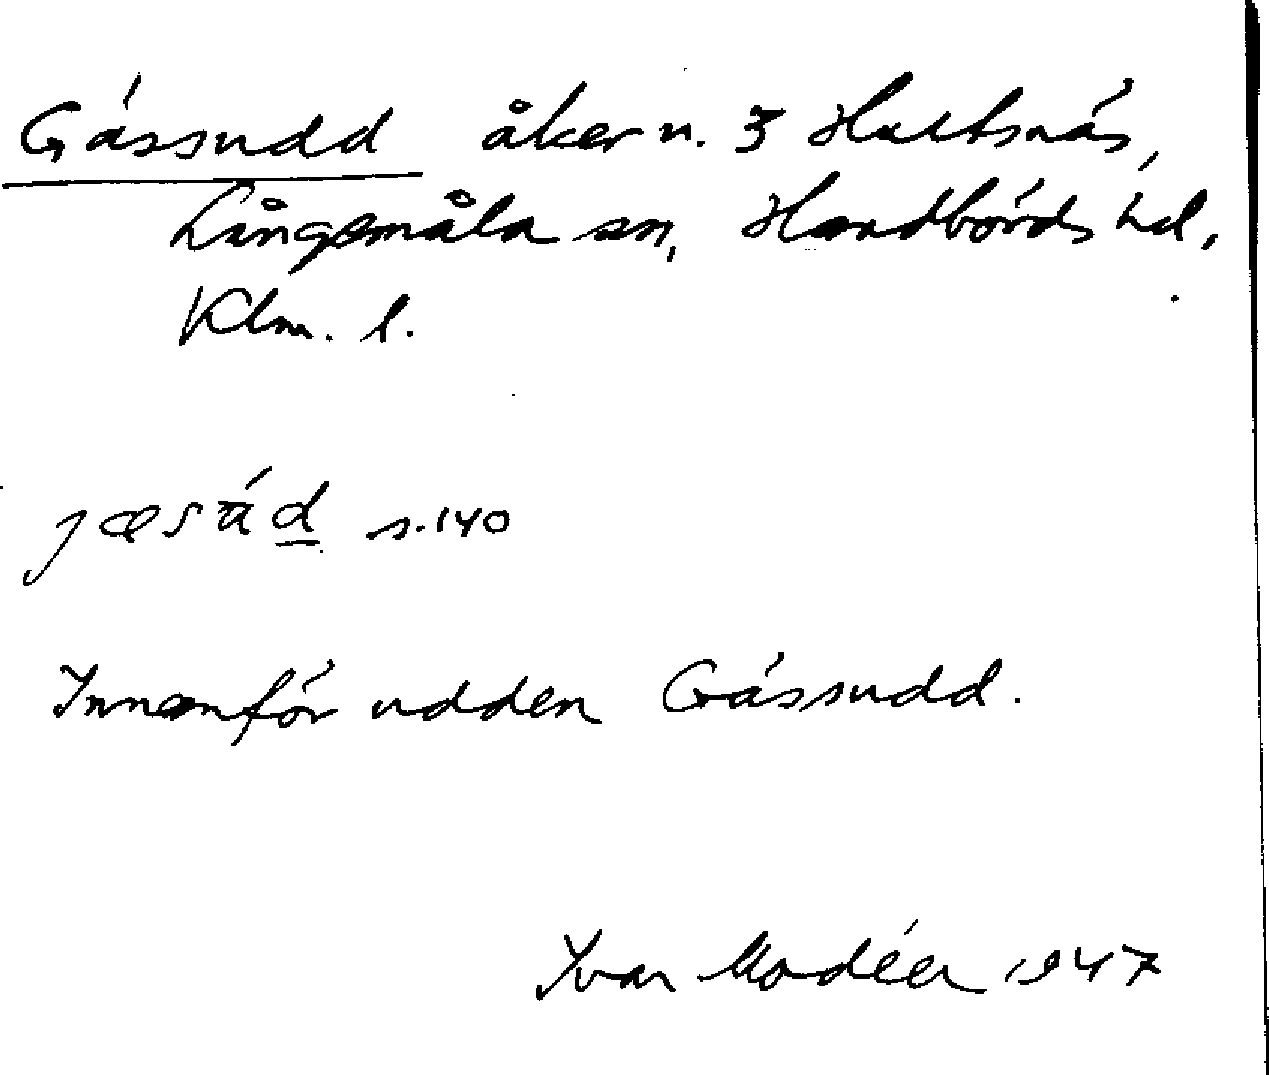 Gässudd åker n. 3 Hultsnäs,
Långemåla sn, Handbörds hd,
Klm. l.
s. 140
Innanför udden Gässudd.
Ivar Modéer 1947